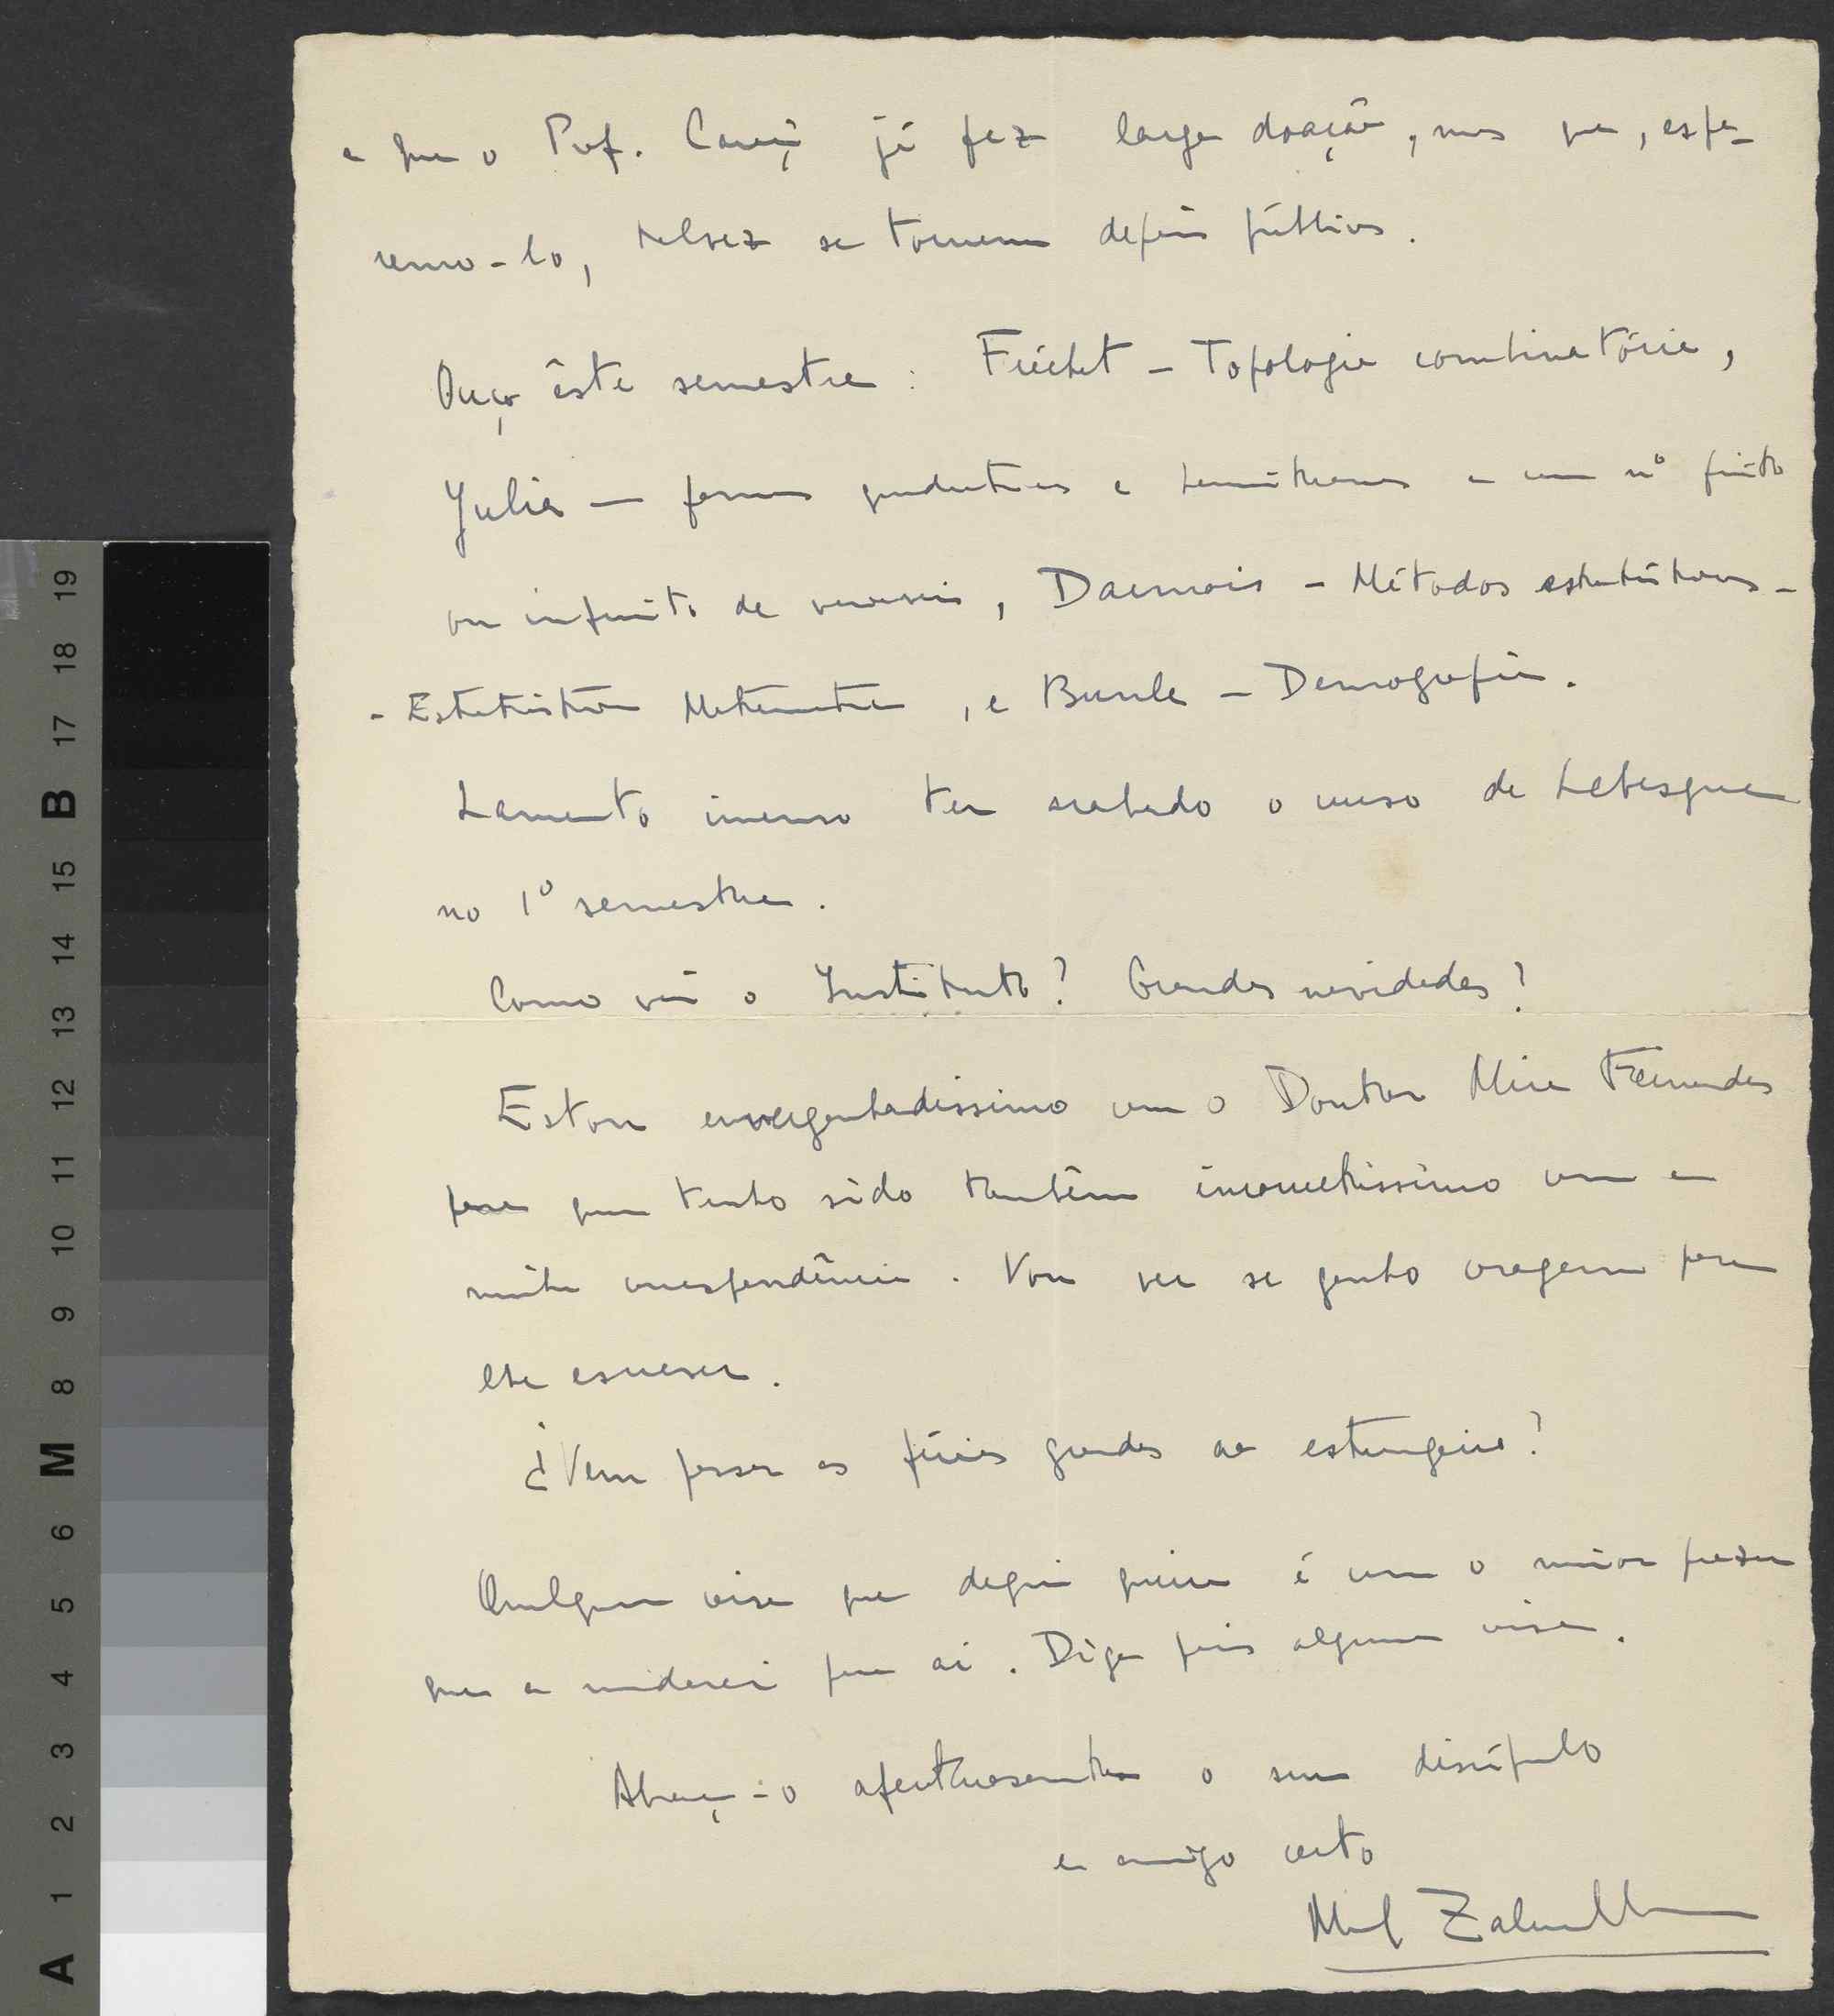 e que o Prof. Caraça já fez larga doação, mas que, espe-
remo-lo, talvez se tornem depois públicos.
Ouço êste semestre: Fréchet - Topologia combinatória,
Julia - formas quadráticas e hermiteanas a um nº finito
ou infinito de variáveis, Darmois - Métodos estatísticos -
- Estatística Matemática, e Bunle - Demografia.
Lamento imenso ter acabado o curso de Lebesgue
no 1º semestre.
Como vai o Instituto? Grandes novidades?
Estou envergonhadíssimo com o Doutor Mira Fernandes
para quem tenho sido também incorrectíssimo com a
minha correspondência. Vou ver se ganho coragem para
lhe escrever.
¿Vem passar as férias grandes ao estrangeiro?
Qualquer coisa que daqui queira é com o maior prazer
que a mandarei para aí. Diga pois alguma coisa.
Abraça-o afectuosamente o seu discípulo
e amigo certo
19
18
17
B
15
14
13
12
11
10
9
8
M
6
5
4
3
2
1
A